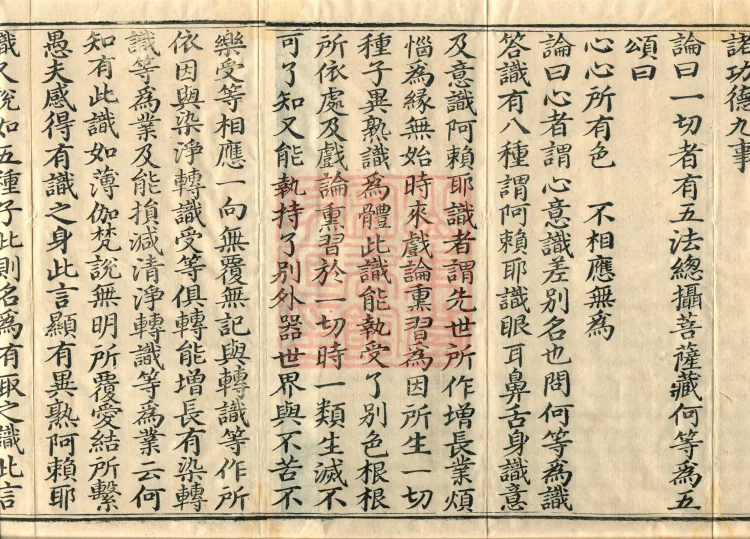 諸功德九事
論曰一切者有五法總攝菩薩藏何等為五
頌曰
心心所有色　不相應無為
論曰心者謂心意識差別名也問何等為識
答識有八種謂阿賴耶識眼耳鼻舌身識意
及意識阿賴耶識者謂先世所作增長業煩
惱為緣無始時來戲論熏習為因所生一切
種子異熟識為體此識能執受了別色根根
所依處及戲論熏習於一切時一類生滅不
可了知又能執持了別外器世界與不苦不
樂受等相應一向無覆無記與轉識等作所
依因與染淨轉識受等俱轉能增長有染轉
識等為業及能損減清淨轉識等為業云何
知有此識如薄伽梵說無明所覆愛結所繫
愚夫感得有識之身此言顯有異熟阿賴耶
識又說如五種子此則名為有取之識此言